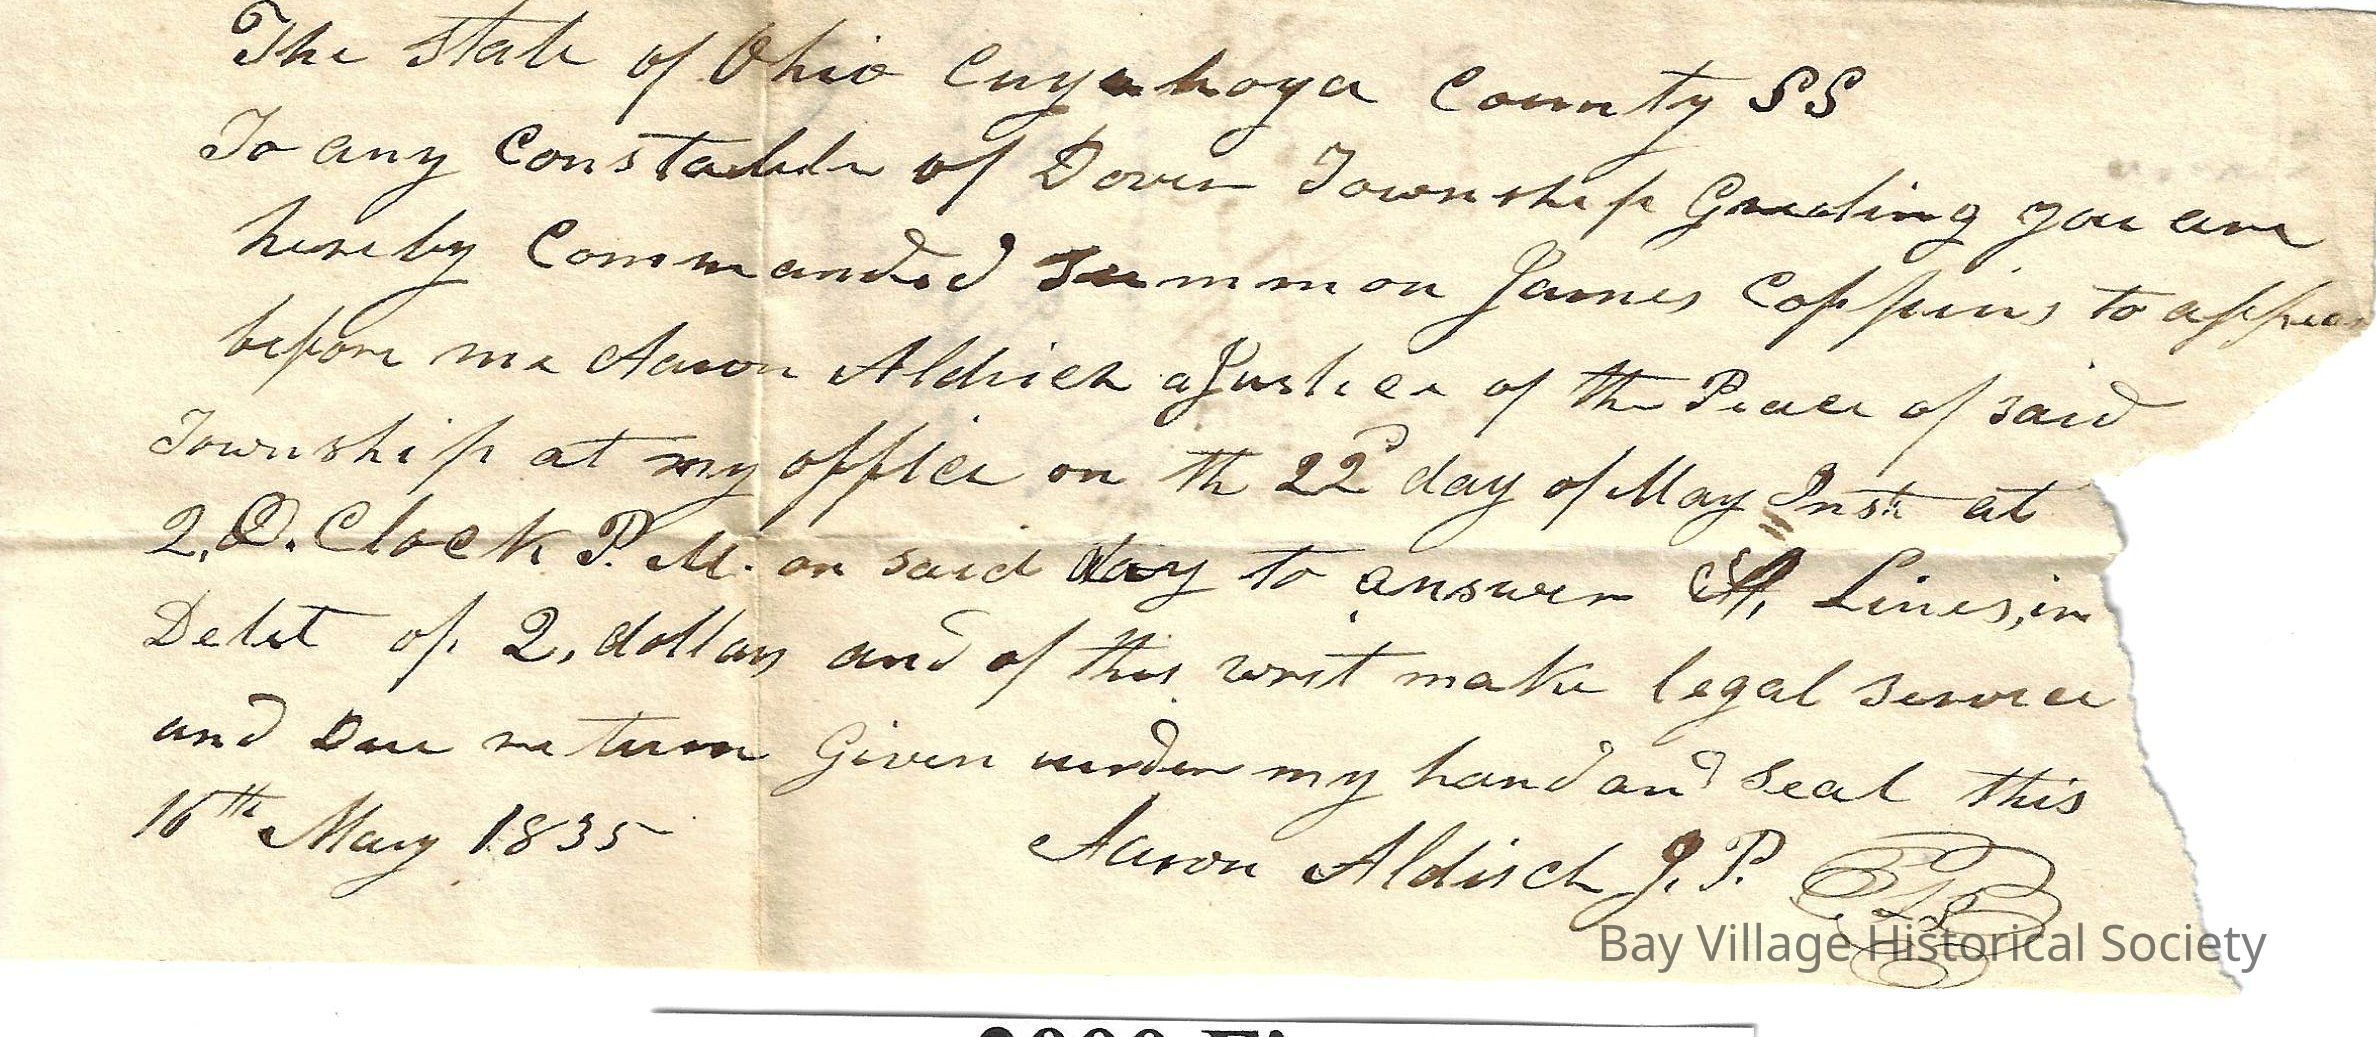 The State of Ohio Cuyahoga County SS
To any Constable of Dover Township Greeting you are
hereby Commanded Summon James Coppins to appear
before me Aaron Aldrich a Justice of the Peace of said
Township at my office on the 22d day of May Inst at
2, O. Clock P. M. on said day to answer A. Lines, in
Debt of 2, dollars and of this writ make legal service
and Due return Given under my hand and seal this
16th May 1835
Aaron Aldrich J. P.
Bay Village Historical Society